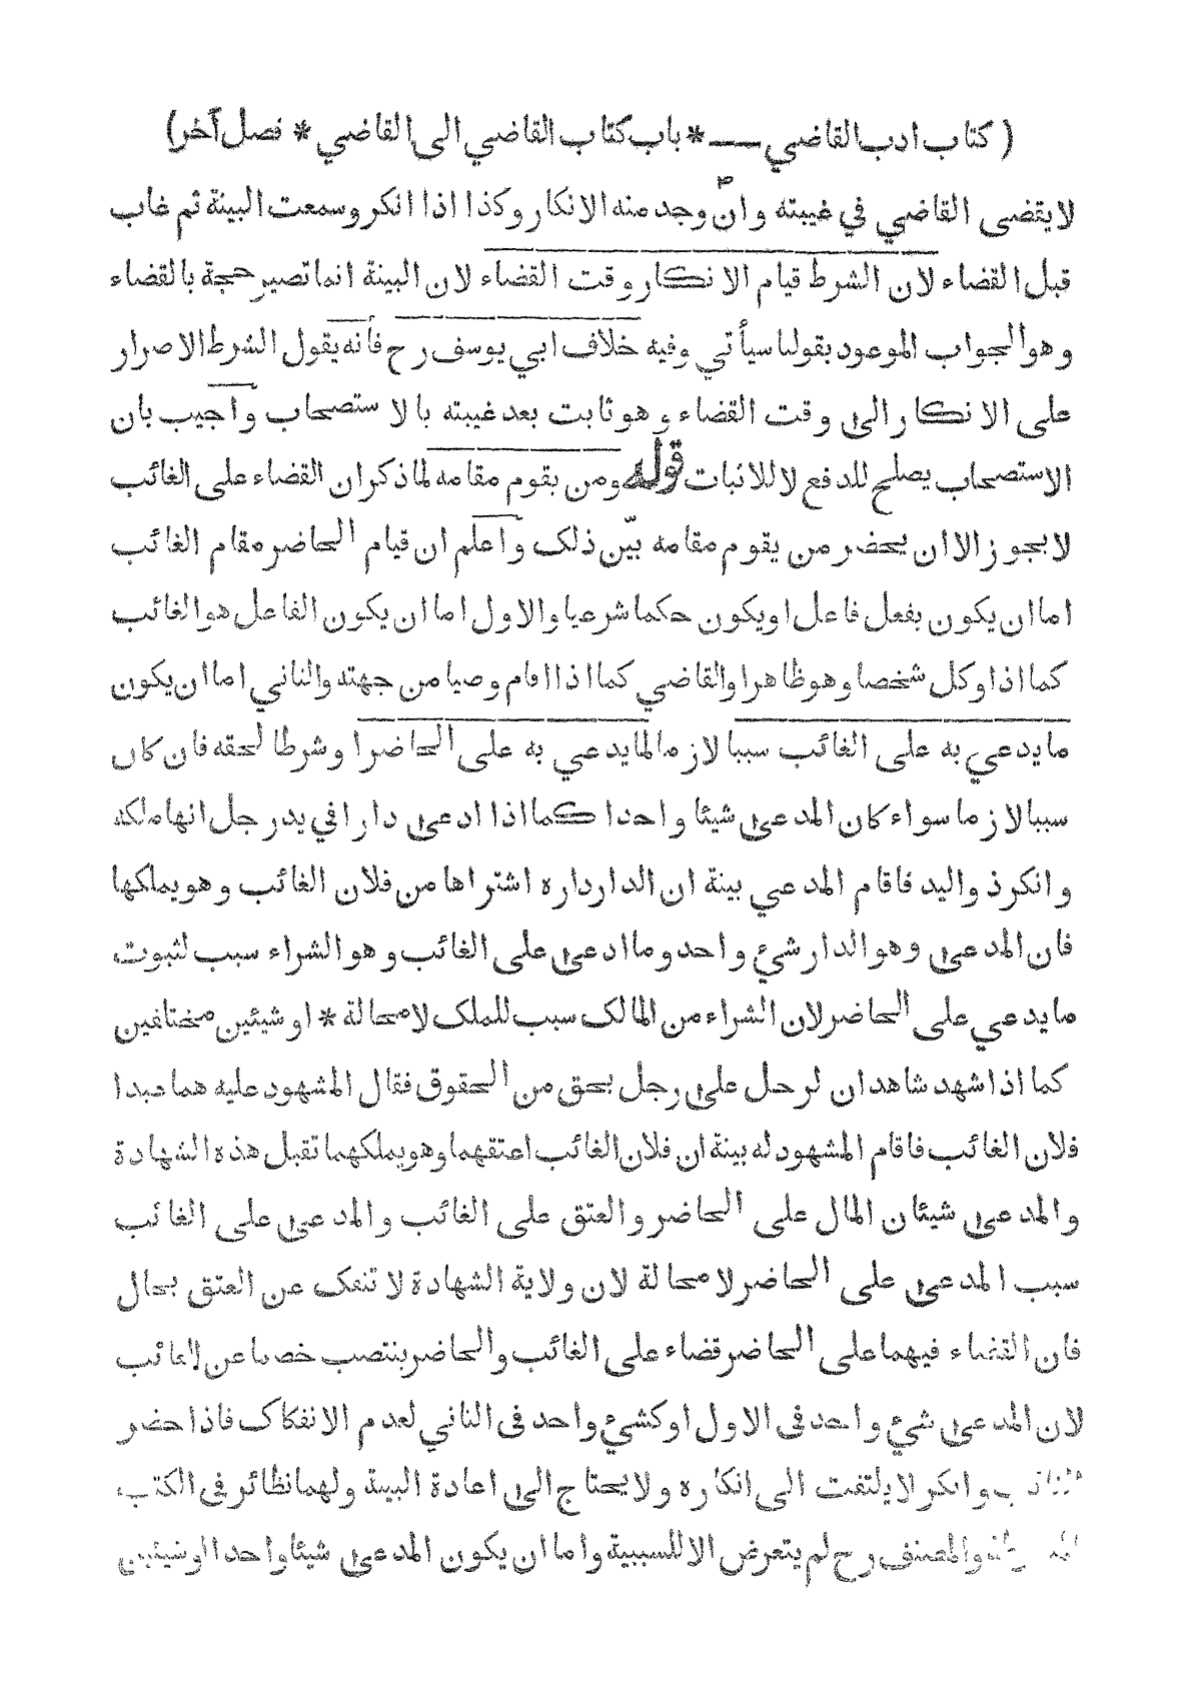 ( كتاب ادب القاضي — * باب كتاب القاضي الى القاضي * فصل آخر )
لا يقضى القاضي في غيبته وان وجد منه الانكار وكذا اذا انكر وسمعت البينة ثم غاب
قبل القضاء لان الشرط قيام الانكار وقت القضاء لان البينة انما تصير حجة بالقضاء
وهو الجواب الموعود بقولنا سيأتي وفيه خلاف ابي يوسف رح فأنه يقول الشرط الاصرار
على الانكار الى وقت القضاء وهو ثابت بعد غيبته بالاستصحاب واجيب بان
الاستصحاب يصلح للدفع لا للاثبات قوله ومن يقوم مقامه لما ذكر ان القضاء على الغائب
لا يجوز الا ان يحضر من يقوم مقامه بيّن ذلك واعلم ان قيام الحاضر مقام الغائب
اما ان يكون بفعل فاعل او يكون حكما شرعيا والاول اما ان يكون الفاعل هو الغائب
كما اذا وكل شخصا وهو ظاهر او القاضي كما اذا اقام وصيا من جهته والثاني اما ان يكون
ما يدعي به على الغائب سببا لازما لما يدعي به على الحاضر او شرطا لحقه فان كان
سببا لازما سواء كان المدعى شيئا واحدا كما اذا ادعى دارا في يد رجل انها ملكه
وانكر ذو اليد فاقام المدعي بينة ان الدار داره اشتراها من فلان الغائب وهو يملكها
فان المدعى وهو الدار شيء واحد وما ادعى على الغائب وهو الشراء سبب لثبوت
ما يدعي على الحاضر لان الشراء من المالك سبب للملك لا محالة * او شيئين مختلفين
كما اذا شهد شاهدان لرجل على رجل بحق من الحقوق فقال المشهود عليه هما عبدا
فلان الغائب فاقام المشهود له بينة ان فلان الغائب اعتقهما وهو يملكهما تقبل هذه الشهادة
والمدعى شيئان المال على الحاضر والعتق على الغائب والمدعى على الغائب
سبب المدعى على الحاضر لا محالة لان ولاية الشهادة لا تنفك عن العتق بحال
فان القضاء فيهما على الحاضر قضاء على الغائب والحاضر ينتصب خصما عن الغائب
لان المدعى شيء واحد فى الاول او كشيء واحد فى الثاني لعدم الانفكاك فاذا حضر
الغائب وانكر لا يلتفت الى انكاره ولا يحتاج الى اعادة البينة ولهما نظائر فى الكتب
والمصنف رح لم يتعرض الا للسببية واما ان يكون المدعى شيئا واحدا او شيئين